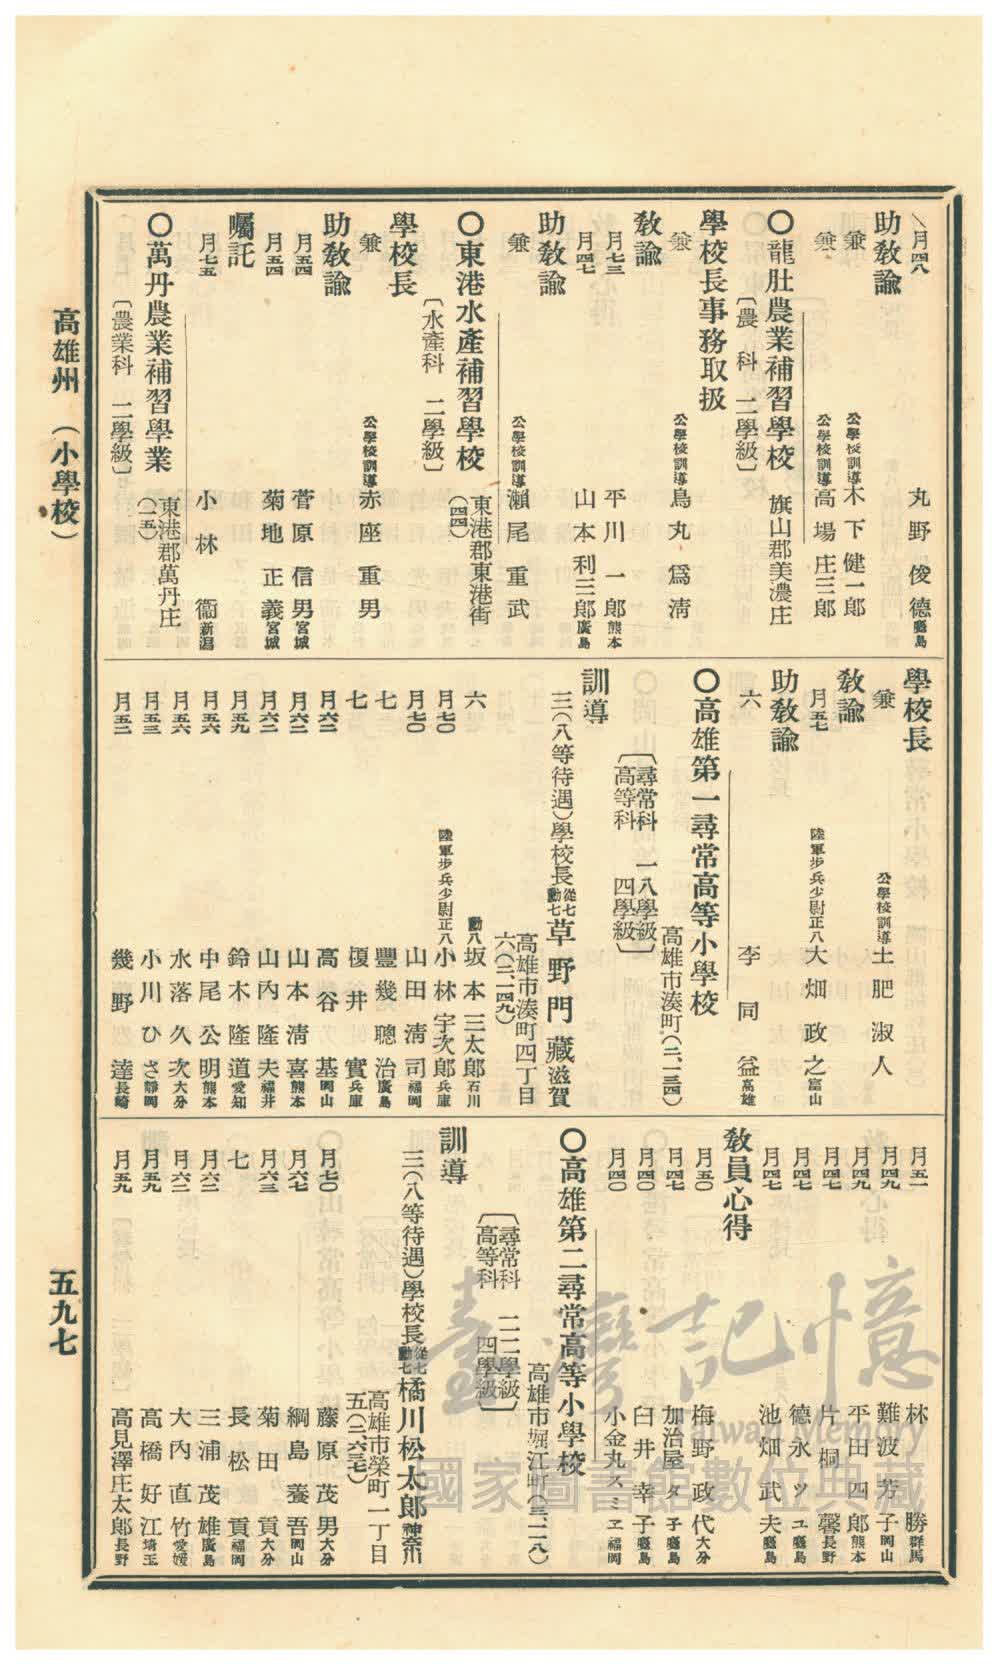 高雄州 (小學校)
五九七
月四八 丸野俊德 廳島
助敎諭
兼 公學校訓導 木下健一郎
兼 公學校訓導 高場庄三郎
〇龍肚農業補習學校 旗山郡美濃庄
〔農科 二學級〕
學校長事務取扱
兼 公學校訓導 鳥丸爲淸
敎諭
月七三 平川一郎 熊本
月四七 山本利三郎 廣島
助敎諭
兼 公學校訓導 瀨尾重武
〇東港水產補習學校 東港郡東港街(四四)
〔水產科 二學級〕
學校長
兼 公學校訓導 赤座重男
助敎諭
月五四 菅原信男 宮城
月五四 菊地正義 宮城
囑託
月七五 小林衞 新潟
〇萬丹農業補習學業 東港郡萬丹庄(一五)
〔農業科 二學級〕
學校長
兼 公學校訓導 土肥淑人
敎諭
月五七 陸軍步兵少尉正八 大畑政之 富山
助敎諭
六 李同益 高雄
〇高雄第一尋常高等小學校 高雄市湊町(二、一三四)
〔尋常科 一八學級
高等科 四學級〕
訓導
三(八等待遇)學校長 從七勳七 草野門藏 滋賀
高雄市湊町四丁目
六(二、一四九)
六 勳八 坂本三太郎 石川
月七〇 陸軍步兵少尉正八 小林宇次郎 兵庫
月七〇 山田淸司 福岡
七 豐幾聰治 廣島
七 榎井實 兵庫
月六二 高谷基 岡山
月六二 山本淸喜 熊本
月六二 山內隆夫 福井
月五九 鈴木隆道 愛知
月五六 中尾公明 熊本
月五六 水落久次 大分
月五三 小川ひさ 靜岡
月五二 幾野達 長崎
月五一 林勝 群馬
月四九 難波芳子 岡山
月四九 平田四郎 熊本
月四七 片桐馨 長野
月四七 德永ツユ 廳島
月四七 池畑武夫 廳島
敎員心得
月五〇 梅野政代 大分
月四七 加治屋タ子 廳島
月四〇 臼井幸子 廳島
月四〇 小金丸スミヱ 福岡
〇高雄第二尋常高等小學校 高雄市堀江町(三、二一八)
〔尋常科 二二學級
高等科 四學級〕
訓導
三(八等待遇)學校長 從七勳七 橘川松太郎 神奈川
高雄市榮町一丁目
五(二、六三七)
月七〇 藤原茂男 大分
月六七 綱島養吾 岡山
月六三 菊田貢 大分
七 長松貢 福岡
月六二 三浦茂雄 廣島
月六二 大內直竹 愛媛
月五九 高橋好江 埼玉
月五九 高見澤庄太郎 長野
臺灣記憶
Taiwan Memory
國家圖書館數位典藏